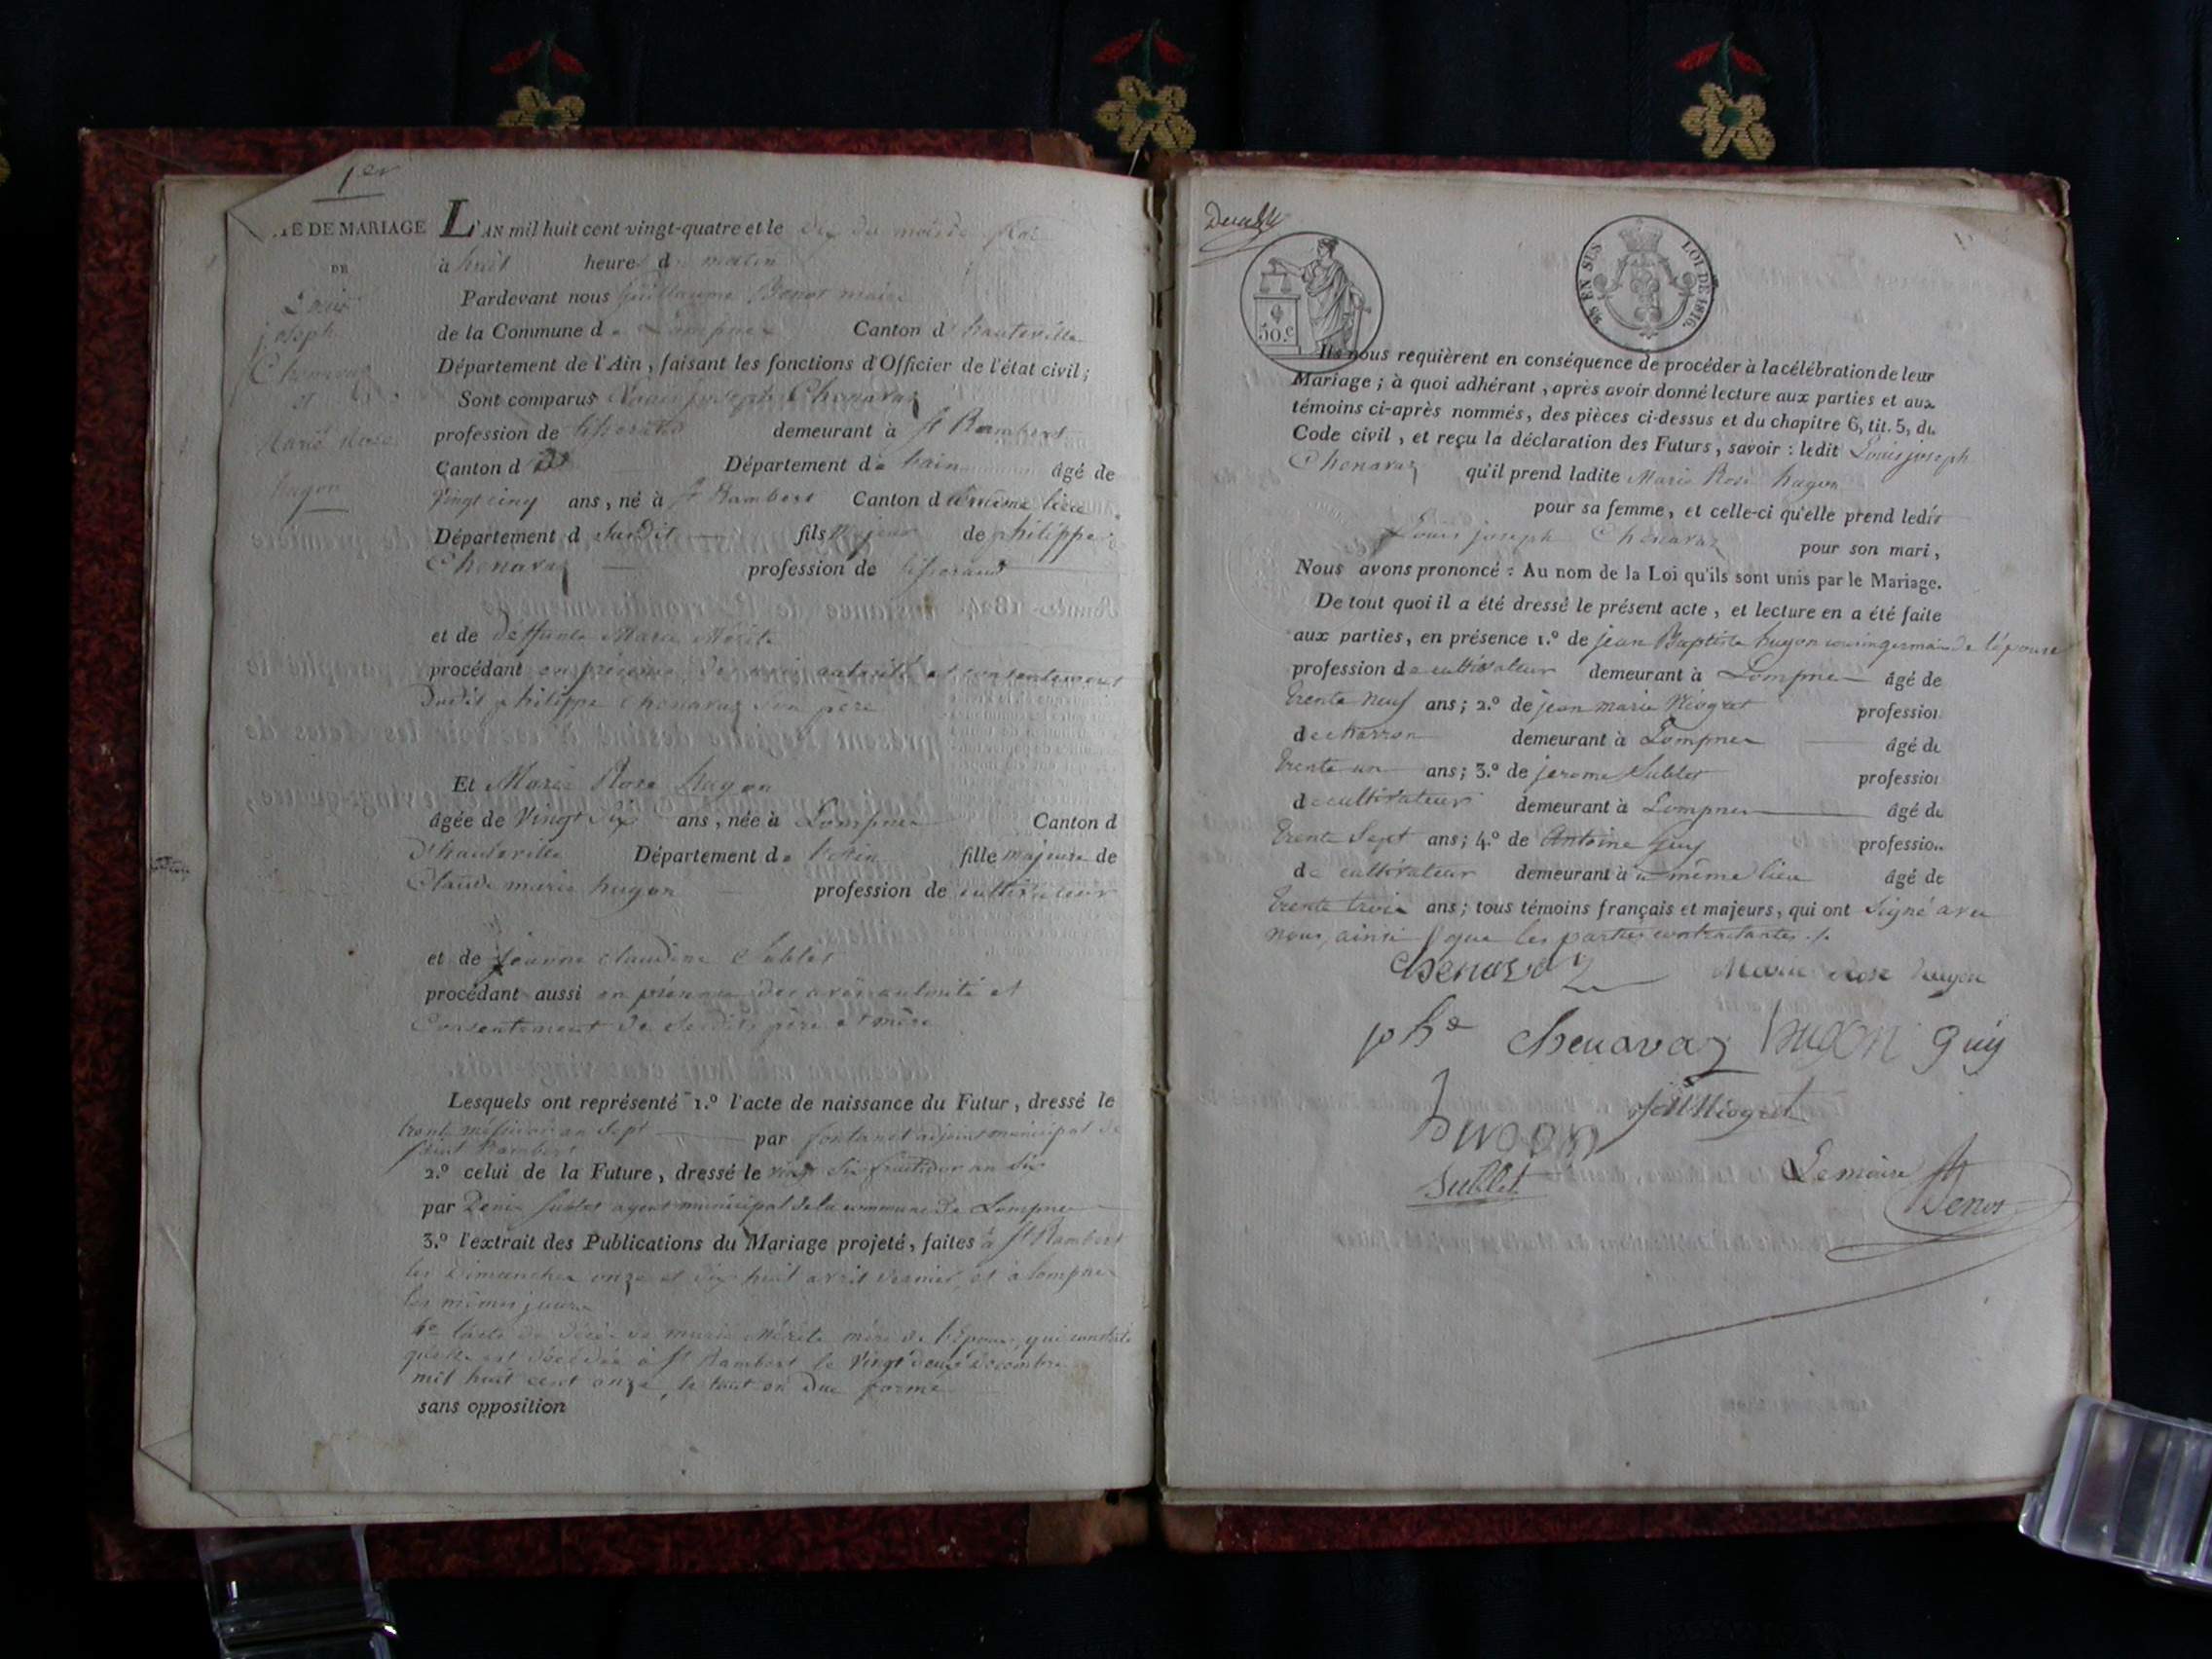 1er
TE DE MARIAGE
DE
Louis
joseph
Chenavaz
et
Marie Rose
hugon
L'AN mil huit cent vingt-quatre et le dix du mois de Mai
à huit heure d matin
Pardevant nous Guillaume Benot maire
de la Commune de Lompnes Canton d'hauteville
Département de l'Ain, faisant les fonctions d'Officier de l'état civil;
Sont comparus Louis joseph Chenavaz
profession de tisserand demeurant à St Rambert
Canton d Département de l'ain âgé de
vingt cinq ans, né à St Rambert Canton d même lieu
Département d susdit fils majeur de philippe
Chenavaz profession de tisserand
et de deffunte Marie Mérite
procédant en présence, de autorité et consentement
dudit philippe Chenavaz son père
Et Marie Rose hugon
âgée de vingt six ans, née à Lompnes Canton d
d'hauteville Département de l'Ain fille majeure de
Claude marie hugon profession de cultivateur
et de claudine Sublet
procédant aussi en présence, de autorité et
Consentement de père et mère
Lesquels ont représenté 1.º l'acte de naissance du Futur, dressé le
trente messidor an sept par fontanet adjoint municipal de
saint Rambert
2.º celui de la Future, dressé le vingt six fructidor an six
par Denis Sublet agent municipal de la commune de Lompnes
3.º l'extrait des Publications du Mariage projeté, faites à St Rambert
les Dimanches onze et dix huit avril dernier, et à lompnes
les mêmes jours
4º l'acte de décès de marie Mérite mère de l'époux, qui constate
quelle est décédée à St Rambert le vingt deux décembre
mil huit cent onze, le tout en due forme
sans opposition
50.c
25 EN SUS LOI DE 1816.
Ils nous requièrent en conséquence de procéder à la célébration de leur
Mariage; à quoi adhérant, après avoir donné lecture aux parties et aux
témoins ci-après nommés, des pièces ci-dessus et du chapitre 6, tit. 5, du
Code civil, et reçu la déclaration des Futurs, savoir: ledit Louis joseph
Chenavaz qu'il prend ladite Marie Rose hugon
pour sa femme, et celle-ci qu'elle prend ledit
Louis joseph Chenavaz pour son mari,
Nous avons prononcé: Au nom de la Loi qu'ils sont unis par le Mariage.
De tout quoi il a été dressé le présent acte, et lecture en a été faite
aux parties, en présence 1.º de jean Baptiste hugon cousin germain de l'épouse
profession de cultivateur demeurant à Lompnes âgé de
trente neuf ans; 2.º de jean marie Niogret profession
de charron demeurant à Lompnes âgé de
trente un ans; 3.º de jerome Sublet profession
de cultivateur demeurant à Lompnes âgé de
trente Sept ans; 4.º de Antoine Guy profession
de cultivateur demeurant à même lieu âgé de
trente trois ans; tous témoins français et majeurs, qui ont Signé avec
nous, ainsi que les parties contractantes ./.
Chenavaz Marie Rose hugon
phe Chenavaz hugon guy
hugon JM Niogret
Sublet Le maire Benot